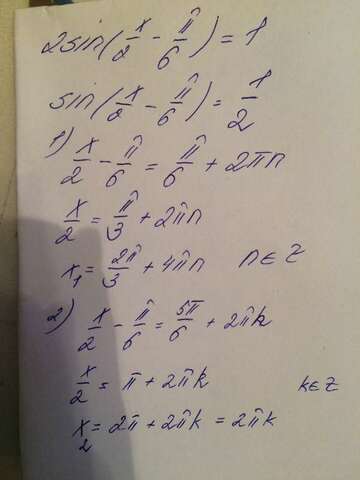 2sin(x/2 - π/6) = 1
sin(x/2 - π/6) = 1/2
1) x/2 - π/6 = π/6 + 2πn
x/2 = π/3 + 2πn
x₁ = 2π/3 + 4πn n ∈ Z
2) x/2 - π/6 = 5π/6 + 2πk
x/2 = π + 2πk k ∈ Z
x₂ = 2π + 2πk = 2πk